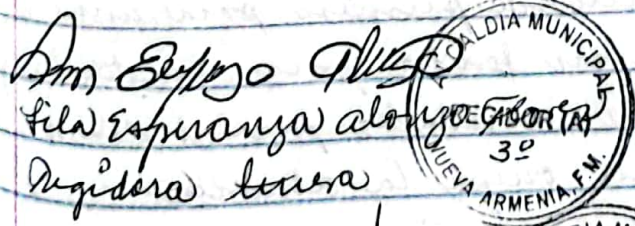 Lila Esperanza alonzo
Regidora tercera
ALCALDIA MUNICIPAL
REGIDOR (A)
3º
NUEVA ARMENIA, F.M.